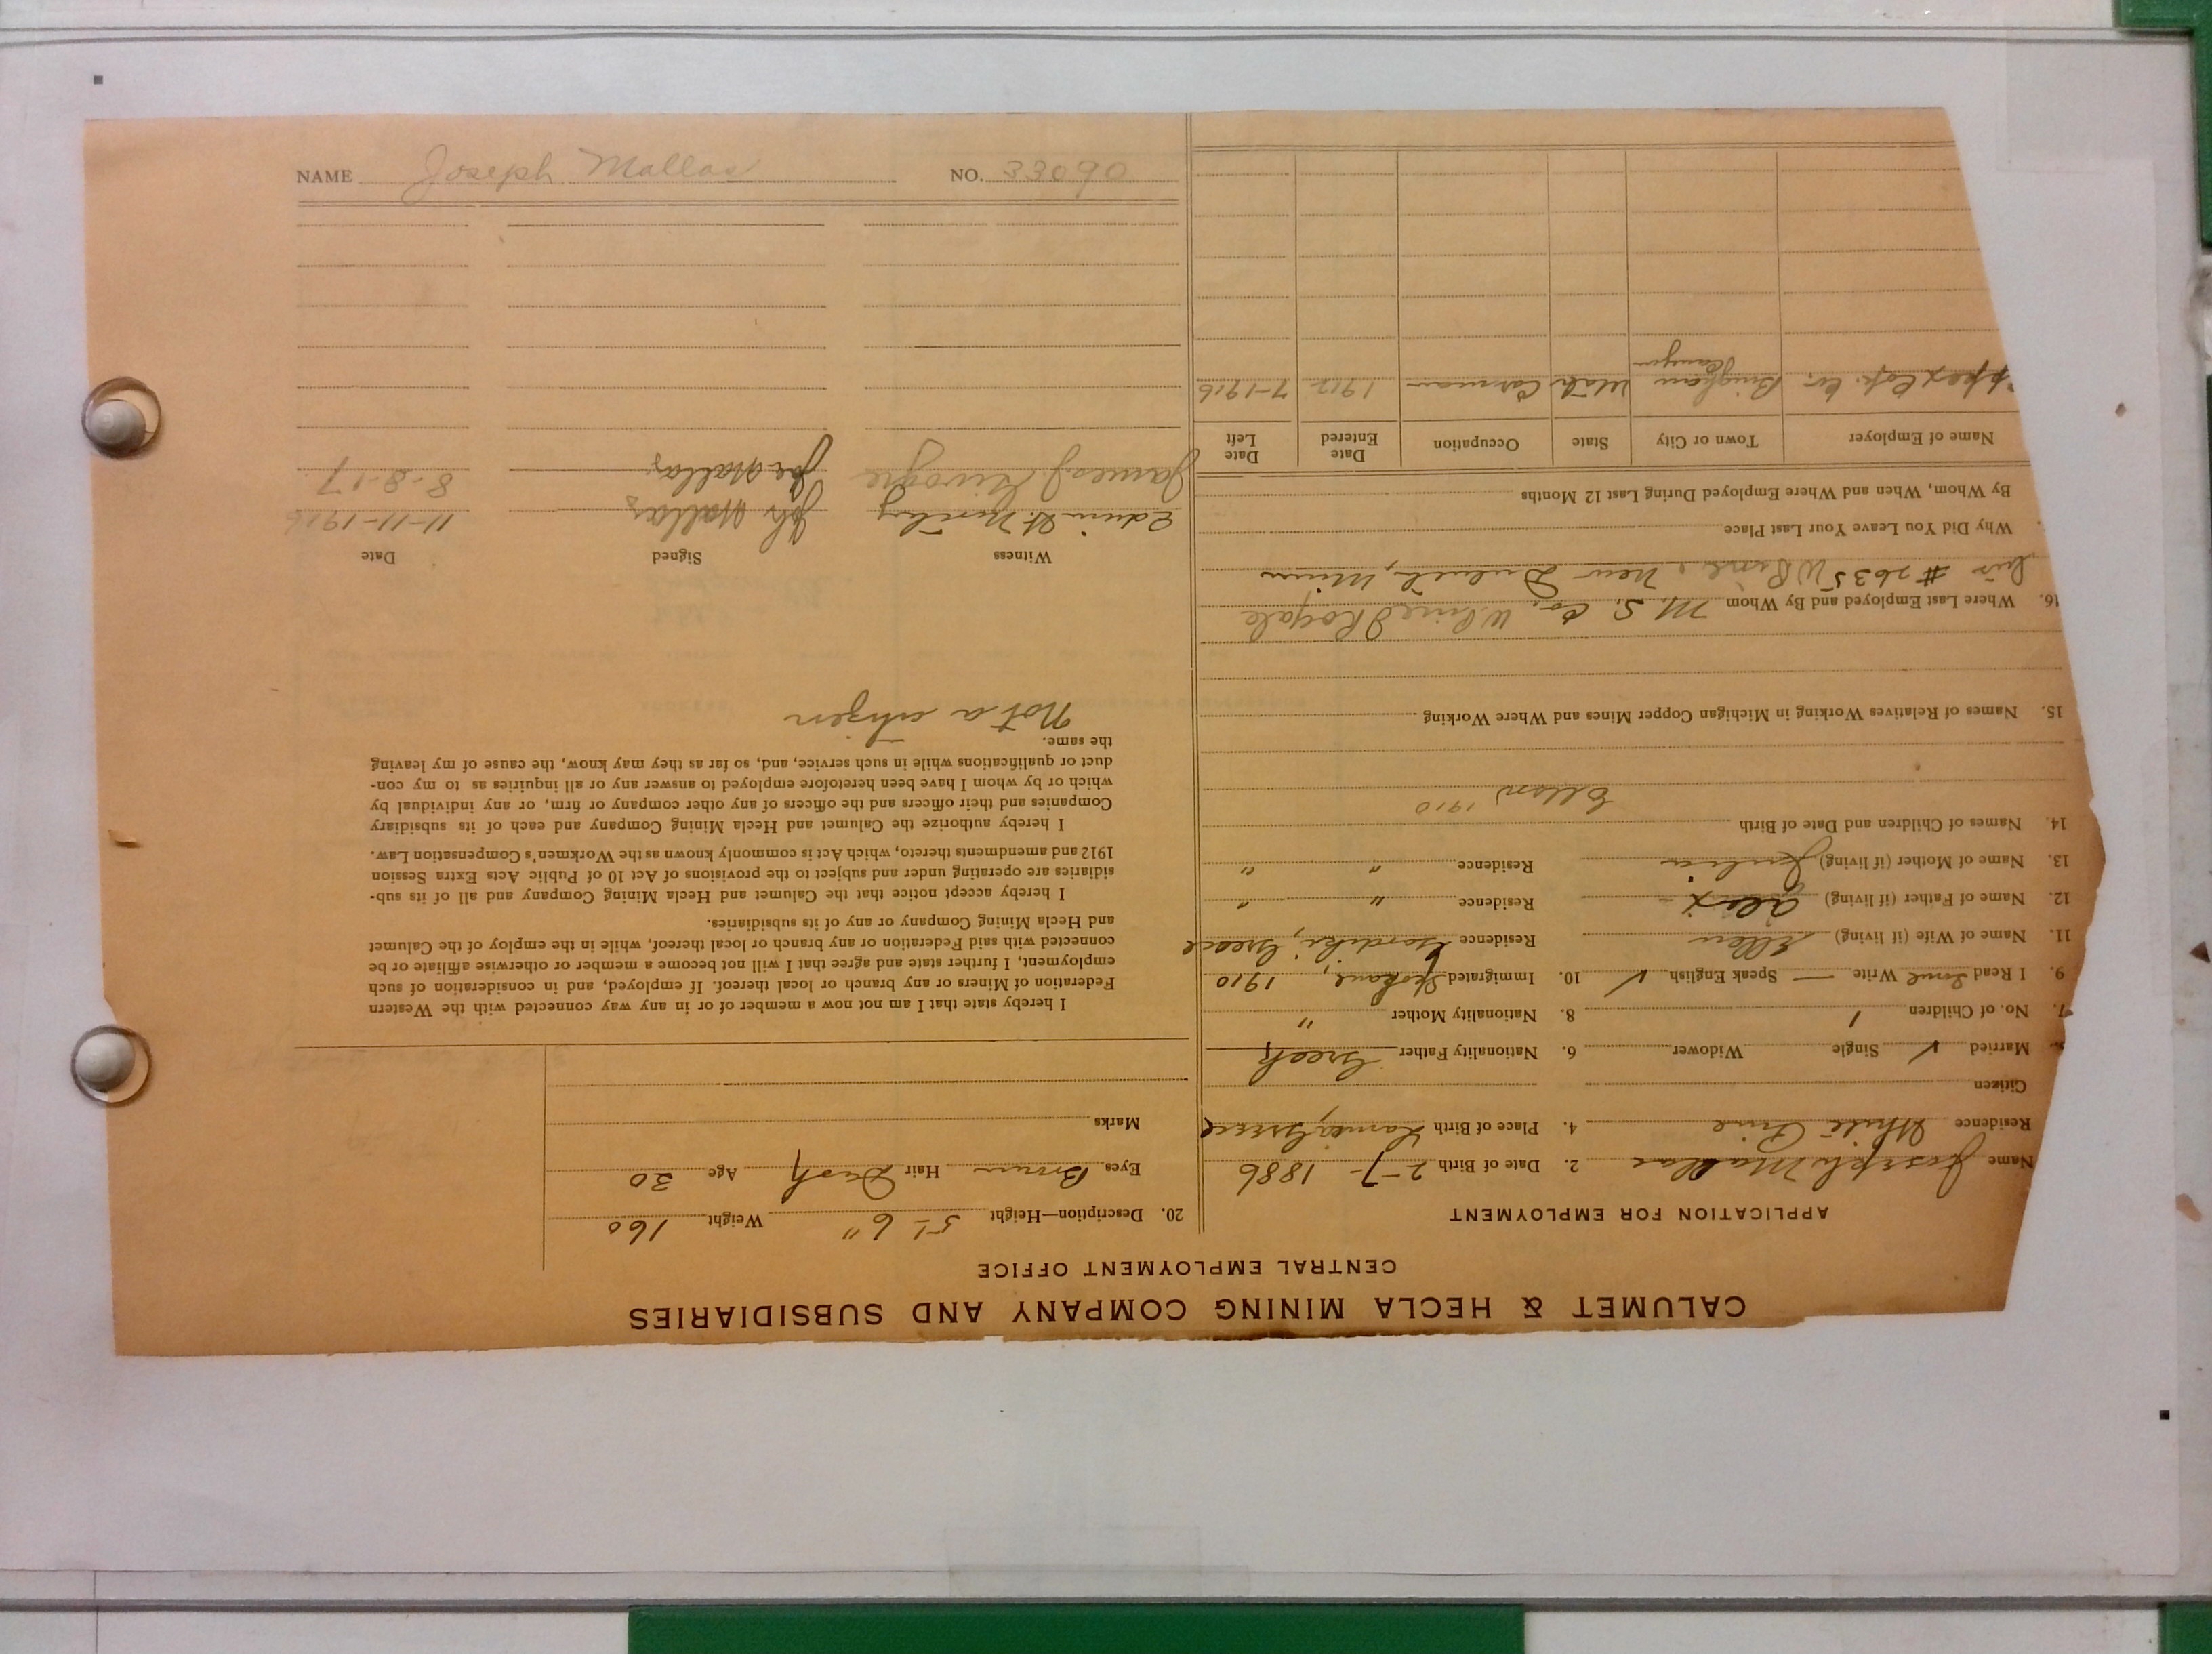 CALUMET & HECLA MINING COMPANY AND SUBSIDIARIES
CENTRAL EMPLOYMENT OFFICE
APPLICATION FOR EMPLOYMENT
Name Joseph Mallas 2. Date of Birth 2-7-1886
Residence White Pine 4. Place of Birth Lamia, Greece
Citizen
Married ✓ Single Widower 6. Nationality Father Greek
7. No. of Children 1 8. Nationality Mother "
9. I Read Some Write — Speak English ✓ 10. Immigrated Spokane, 1910
11. Name of Wife (if living) Ellen Residence Gardiki, Greece
12. Name of Father (if living) Alex Residence " "
13. Name of Mother (if living) Julia Residence " "
14. Names of Children and Date of Birth
Ellen 1910
15. Names of Relatives Working in Michigan Copper Mines and Where Working
16. Where Last Employed and By Whom M. S. Co.
# 2635 New Duluth, Minn
Why Did You Leave Your Last Place
By Whom, When and Where Employed During Last 12 Months
Name of Employer Town or City State Occupation Date Entered Date Left
Cop. Co. Bingham Canyon Utah Carman 1912 7-1916
20. Description—Height 5' 6" Weight 160
Eyes Brown Hair Dark Age 30
Marks
I hereby state that I am not now a member of or in any way connected with the Western
Federation of Miners or any branch or local thereof. If employed, and in consideration of such
employment, I further state and agree that I will not become a member or otherwise affiliate or be
connected with said Federation or any branch or local thereof, while in the employ of the Calumet
and Hecla Mining Company or any of its subsidiaries.
I hereby accept notice that the Calumet and Hecla Mining Company and all of its sub-
sidiaries are operating under and subject to the provisions of Act 10 of Public Acts Extra Session
1912 and amendments thereto, which Act is commonly known as the Workmen's Compensation Law.
I hereby authorize the Calumet and Hecla Mining Company and each of its subsidiary
Companies and their officers and the officers of any other company or firm, or any individual by
which or by whom I have been heretofore employed to answer any or all inquiries as to my con-
duct or qualifications while in such service, and, so far as they may know, the cause of my leaving
the same.
Not a citizen
Witness Signed Date
Edwin Jos Mallas 11-11-1916
James J Joe Mallas 8-8-17
NAME Joseph Mallas NO. 33090